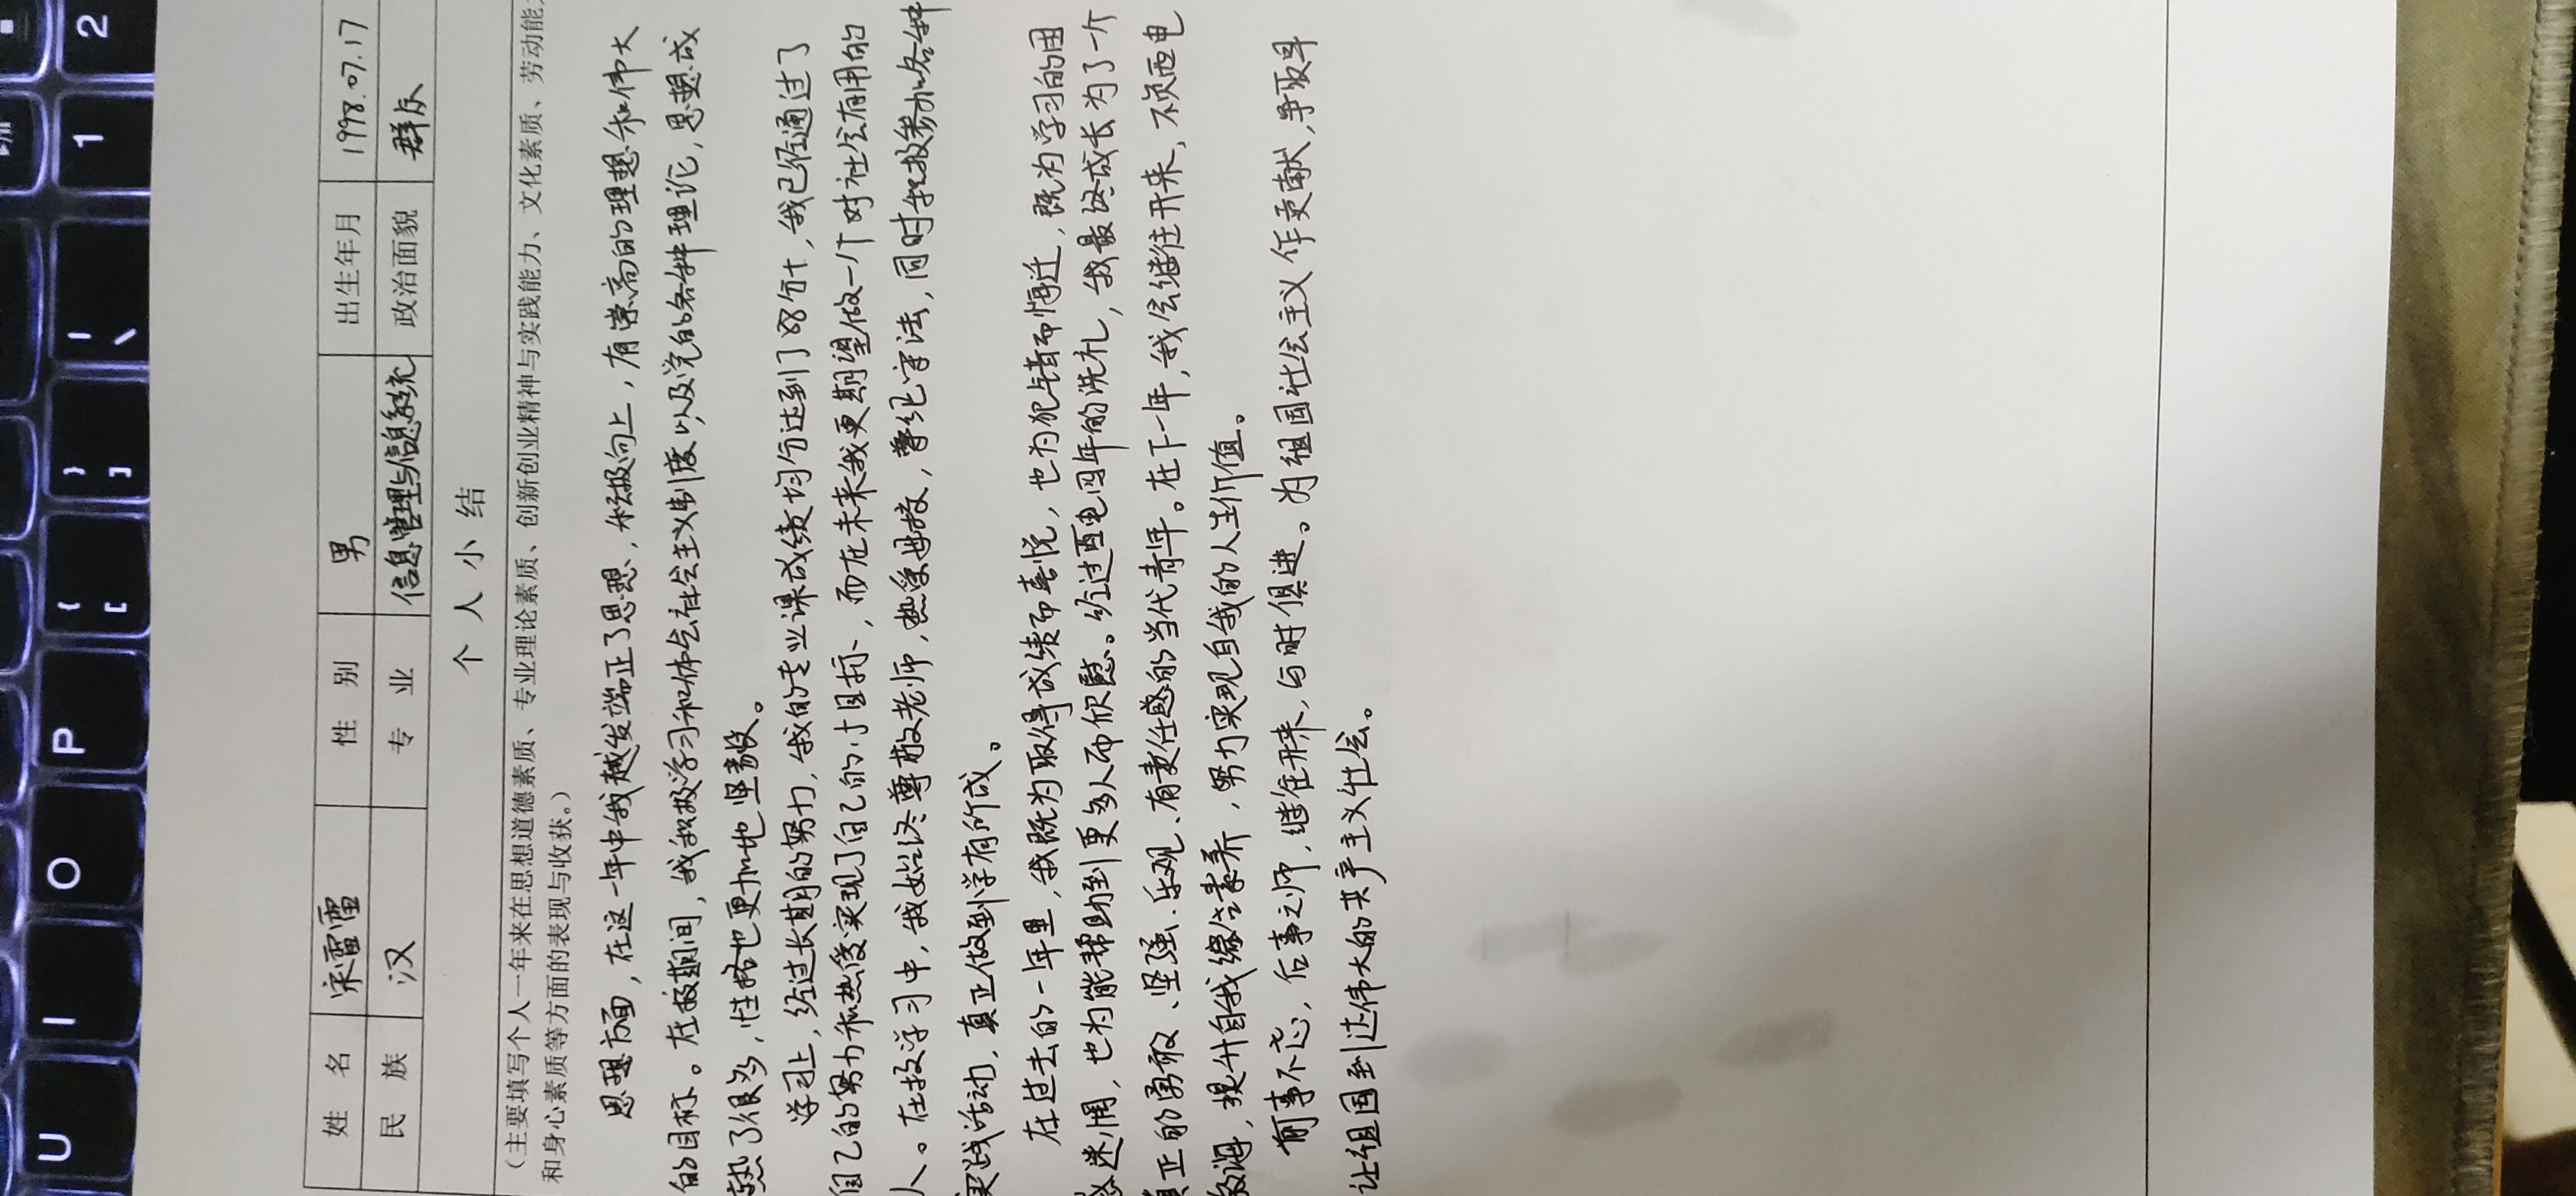 U I O P { [ } ] | \ 1 2
姓 名 宋雷雷 性 别 男 出生年月 1998.07.17
民 族 汉 专 业 信息管理与信息系统 政治面貌 群众
个 人 小 结
（主要填写个人一年来在思想道德素质、专业理论素质、创新创业精神与实践能力、文化素质、劳动能力
和身心素质等方面的表现与收获。）
思想方面，在这一年中我越发端正了思想，积极向上，有崇高的理想和伟大
的目标。在校期间，我积极学习和体会社会主义制度以及党的各种理论，思想成
熟了很多，性格也更加地坚毅。
学习上，经过长期的努力，我的专业课成绩均分达到了88分+，我已经通过了
自己的努力和热爱实现了自己的小目标，而在未来我更期望做一个对社会有用的
人。在校学习中，我始终尊敬老师，热爱母校，尊纪守法，同时积极参加各种
实践活动，真正做到学有所成。
在过去的一年里，我既为取得成绩而喜悦，也为犯错而悔过，既为学习的困
惑迷惘，也为能帮助到更多人而欣慰。经过西电四年的洗礼，我最终成长为了一个
真正的勇敢、坚强、乐观、有责任感的当代青年。在下一年，我会继往开来，不负西电
教诲，提升自我综合素养，努力实现自我的人生价值。
前事不忘，后事之师，继往开来，与时俱进。为祖国社会主义作贡献，争取早
让祖国到达伟大的共产主义社会。